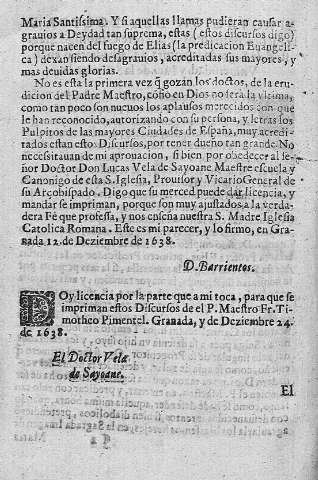 Maria Santissima. Y si aquellas llamas pudieran causar a-
grauios a Deydad tan suprema, estas (estos discursos digo)
porque nacen del fuego de Elias (la predicacion Euangeli-
ca) dexan siendo desagrauios, acreditadas sus mayores, y
mas deuidas glorias.
No es esta la primera vez q̃ gozan los doctos, de la eru-
dicion del Padre Maestro, como en Dios no sera la vltima,
como tan poco son nueuos los aplausos merecidos con que
le han reconocido, autorizando con su persona, y letras los
Pulpitos de las mayores Ciudades de España, muy acredi-
tados estan estos Discursos, por tener dueño tan grande. No
necessitauan de mi aprouacion, si bien por obedecer al se-
ñor Doctor Don Lucas Vela de Sayoane Maestre escuela y
Canonigo de esta S. Iglesia, Prouisor y Vicario General de
su Arçobispado. Digo que su merced puede dar licencia, y
mandar se impriman, porque son muy ajustados a la verda-
dera Fè que professa, y nos enseña nuestra S. Madre Iglesia
Catolica Romana. Este es mi parecer, y lo firmo, en Gra-
nada 12. de Deziembre de 1638.
D. Barrientos.
DOy licencia por la parte que a mi toca, para que se
impriman estos Discursos de el P. Maestro Fr. Ti-
motheo Pimentel. Granada, y de Deziembre 24.
de 1638.
El Doctor Vela
de Sayoane.
El